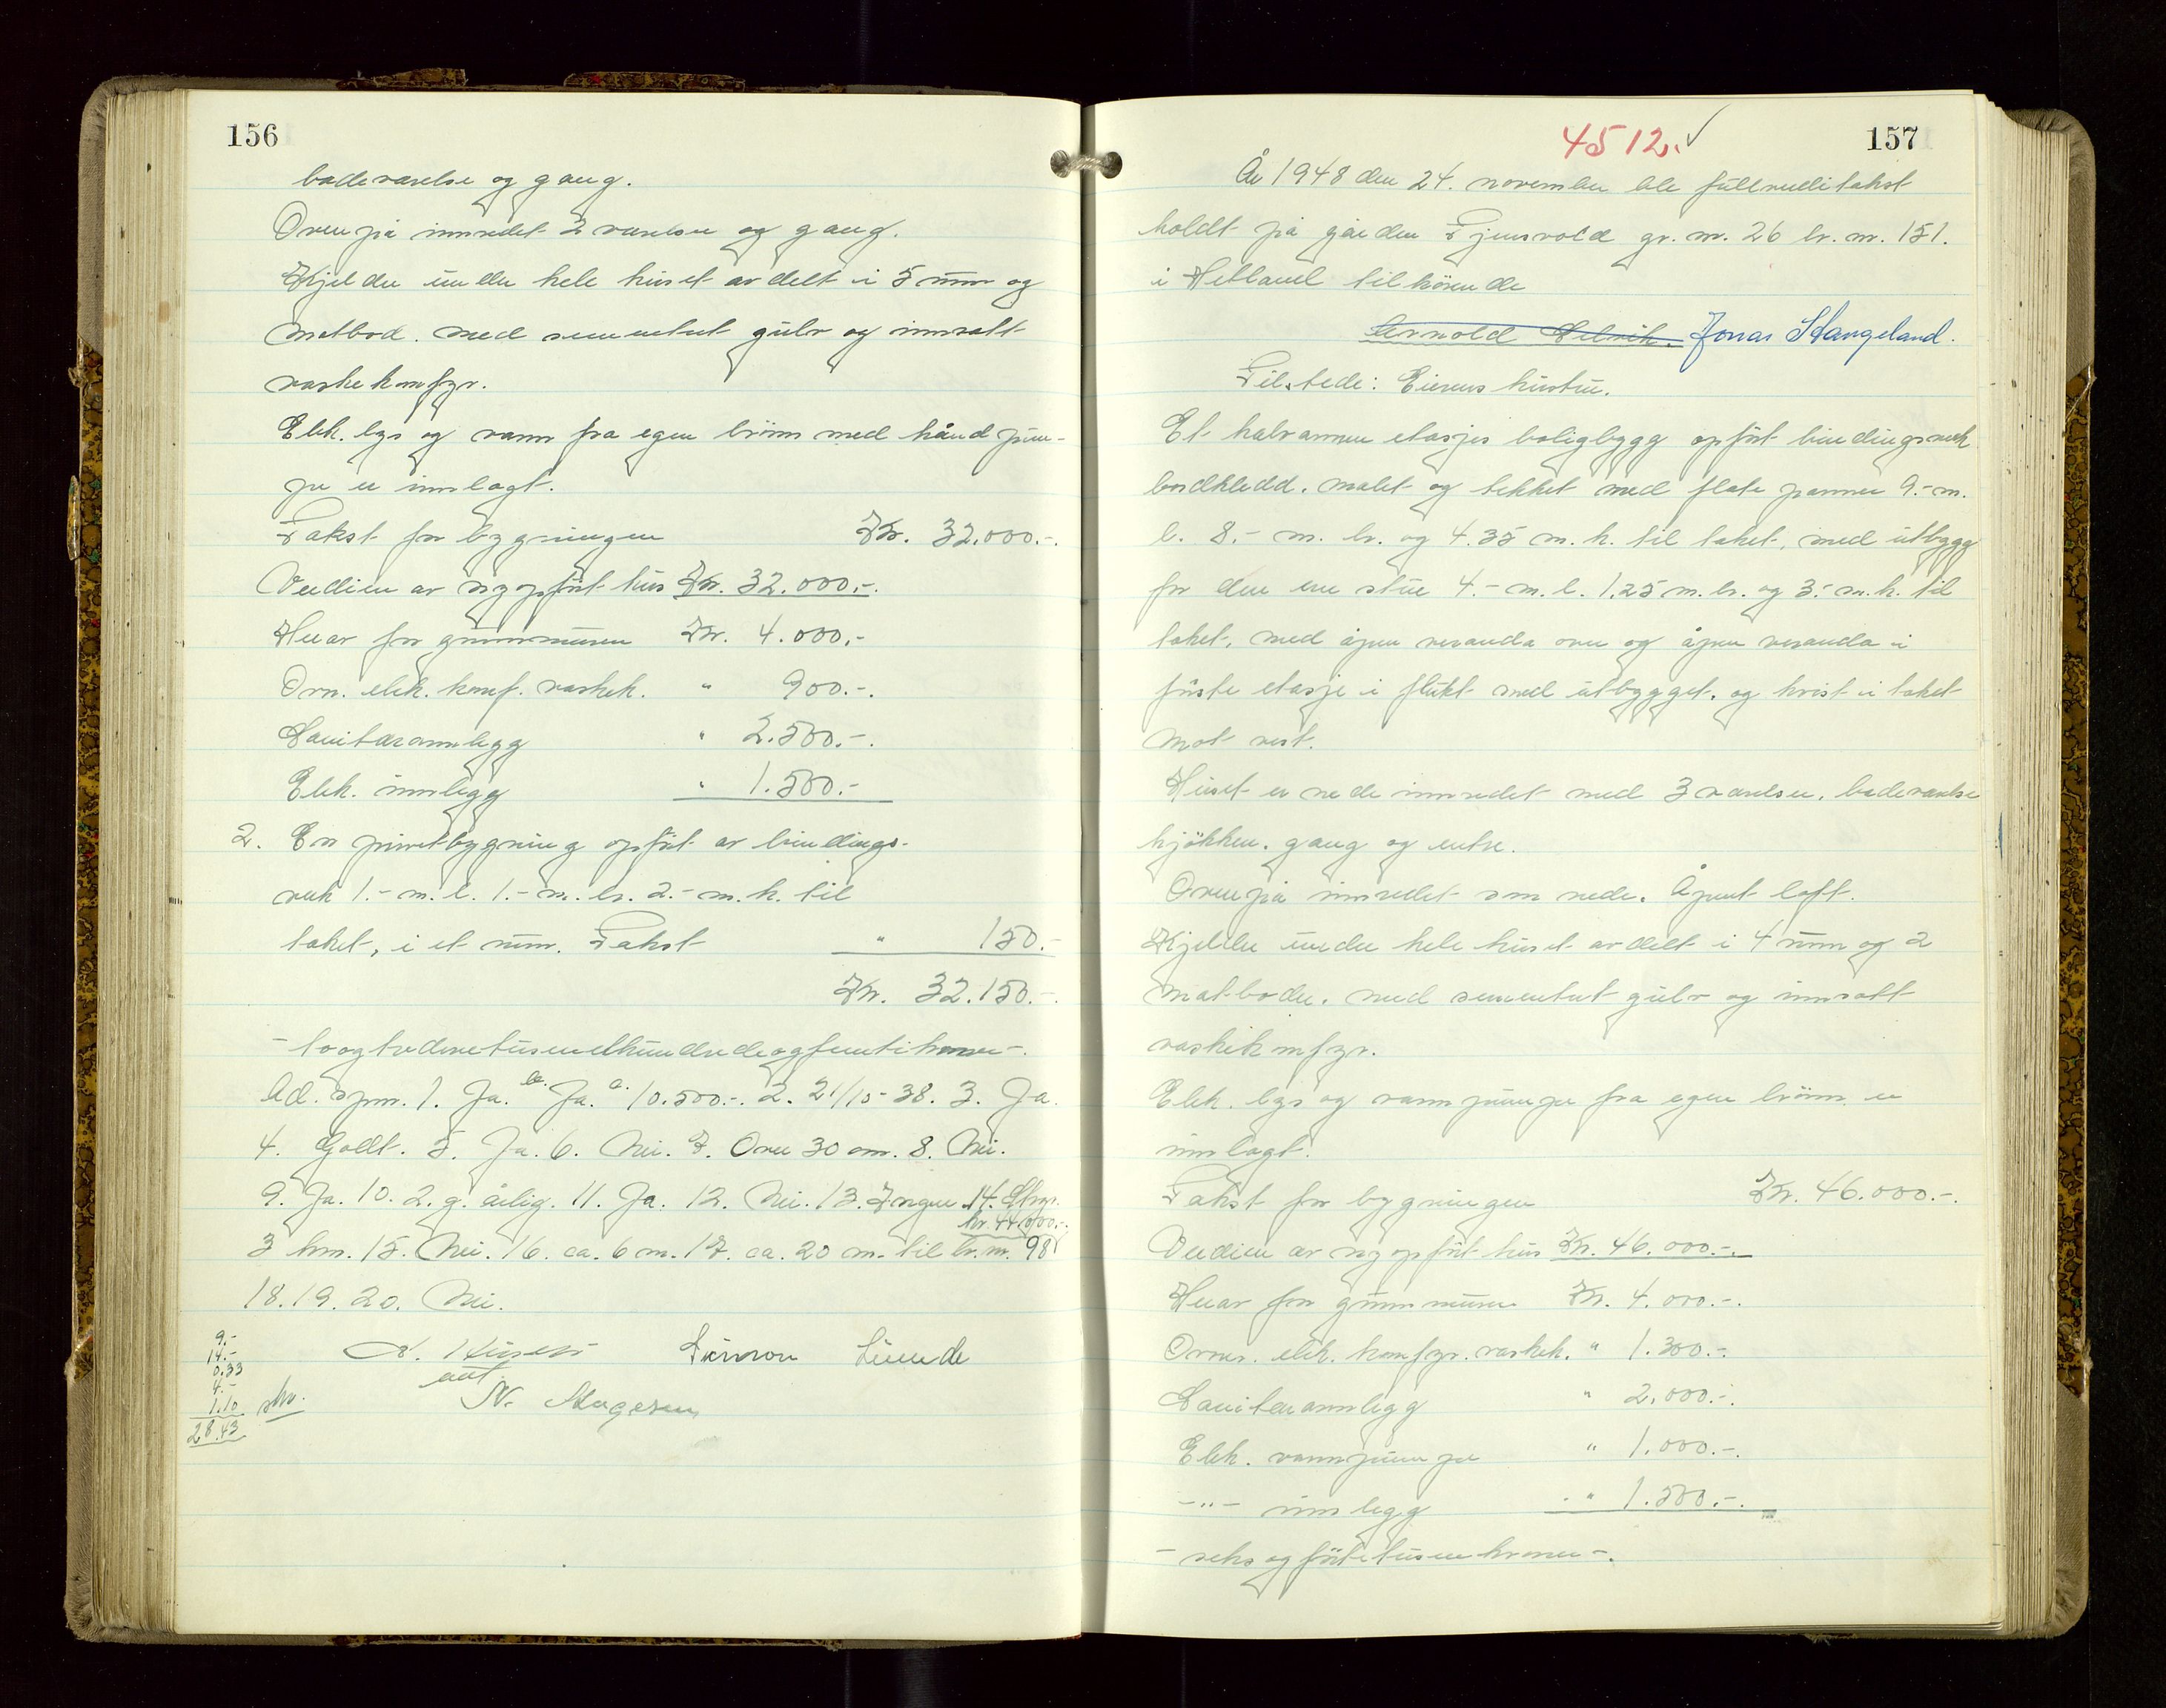 156
badeværelse og gang.
Ovenpå innredet 2 værelser og gang.
Kjelder under hele huset avdelt i 5 rum og
matbod, med sementert gulv og innsatt
vaskekomfyr.
Elek. lys og vann fra egen brönn med hånd pum-
pe er innlagt.
Takst for bygningen Kr. 32.000.-.
Verdien av nyopfört hus Kr. 32.000.-.
Herav for grunnmuren Kr. 4.000.-
Ovn. elek. komf. vaskek. " 900.-.
Sanitæranlegg " 2.500.-.
Elek. innlegg " 1.500.-
2. En privetbygning opfört av bindings-
verk 1.- m. l. 1.- m. br. 2.- m. h. til
taket, i et rum. Takst " 150.-
Kr. 32.150.-.
- toogtredvetusenethundredeogfemtikroner-.
Ad. spm. 1. Ja. b. Ja. a. 10.500.-. 2. 21/10-38. 3. Ja.
4. Godt. 5. Ja. 6. Nei. 7. Over 30 cm. 8. Nei.
9. Ja. 10. 2. g. årlig. 11. Ja. 12. Nei. 13. Ingen. 14.
kr. 44.000.-.
3 km. 15. Nei. 16. ca. 6 m. 17. ca. 20 m. til br. nr. 98
18. 19. 20. Nei.
9.-
14.-
0.33
4.-
1.10
28.43
Simon Lunde
4512. ✓
157
År 1948 den 24. november ble fullverditakst
holdt på gården Tjensvold gr. nr. 26 br. nr. 151.
i Hetland tilhörende
Arnold Selvik. Jonas Stangeland.
Tilstede: Eierens hustru.
Et halvannen etasjes boligbygg opfört bindingsverk
bordkledd, malet og tekket med flate panner 9.- m.
l. 8.- m. br. og 4.35 m. h. til taket, med utbygg
for den ene stue 4.- m. l. 1.25 m. br. og 3.- m. h. til
taket, med åpen veranda over og åpen veranda i
förste etasje i flukt med utbygget, og kvist i taket
mot vest.
Huset er nede innredet med 3 værelser, badeværelse
kjökken, gang og entre.
Ovenpå innredet som nede. Åpent loft.
Kjelder under hele huset avdelt i 4 rum og 2
matboder, med sementert gulv og innsatt
vaskekomfyr.
Elek. lys og vannpumpe fra egen brönn er
innlagt.
Takst for bygningen Kr. 46.000.-.
Verdien av nyopfört hus Kr. 46.000.-.
Herav for grunnmuren Kr. 4.000.-.
Ovner. elek. komfyr. vaskek. " 1.300.-.
Sanitæranlegg " 2.000.-.
Elek. vannpumpe " 1.000.-.
-"- innlegg " 1.500.-.
- seksogförtitusenkroner-.